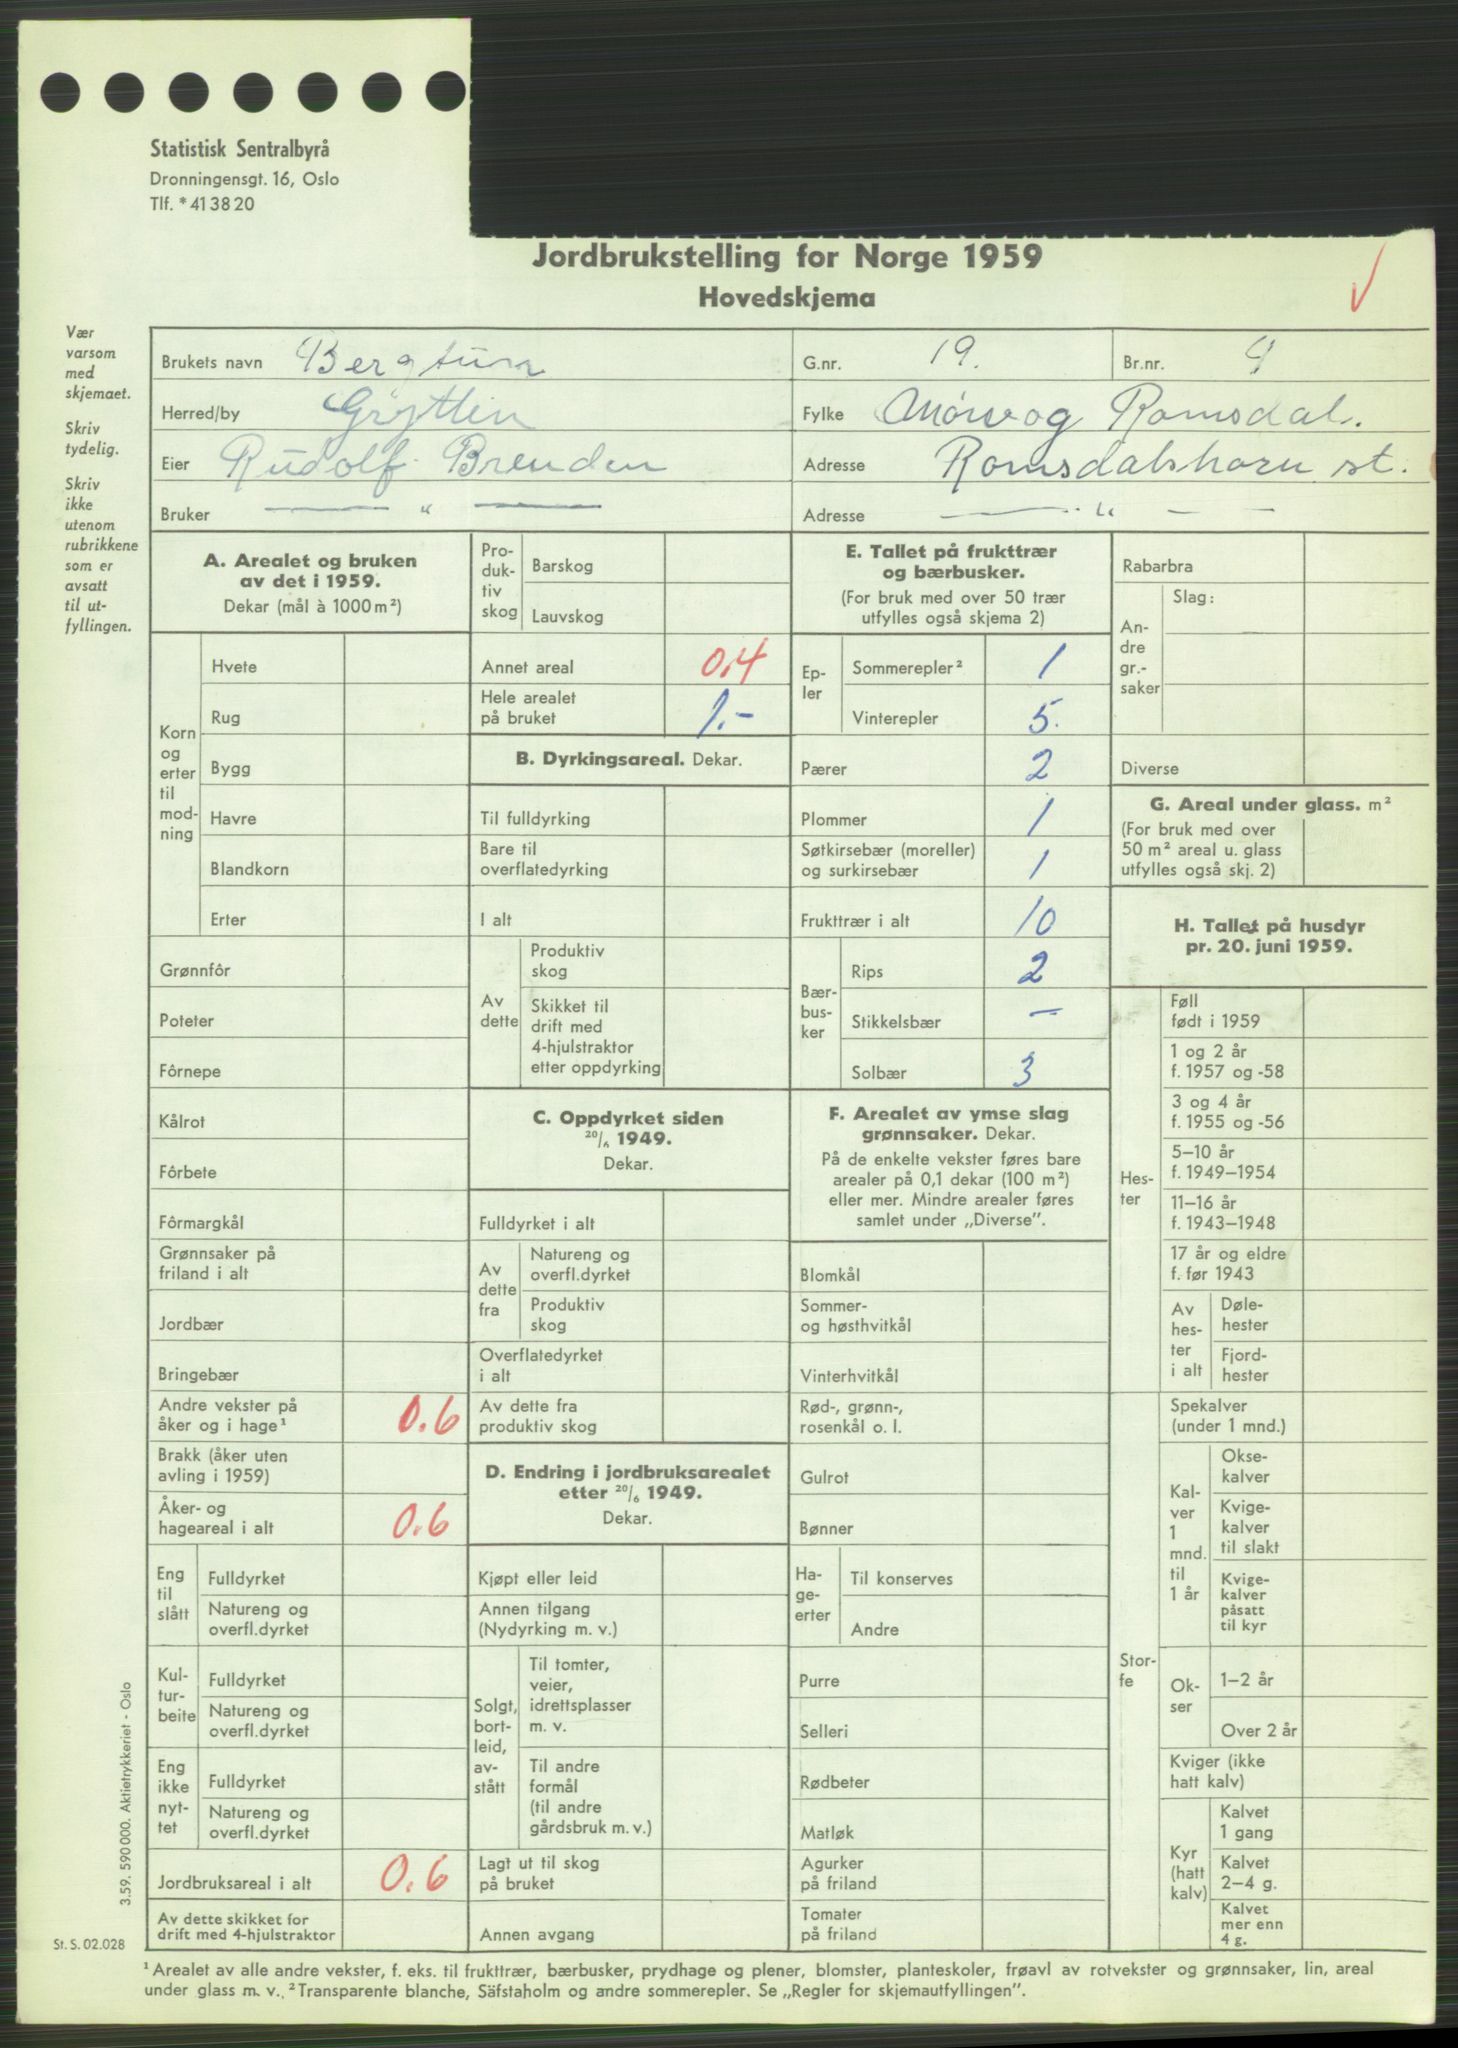 Statistisk Sentralbyrå
Dronningensgt. 16, Oslo
Tlf. *41 38 20
Jordbrukstelling for Norge 1959
Hovedskjema
Vær
varsom
med
skjemaet.
Skriv
tydelig.
Skriv
ikke
utenom
rubrikkene
som er
avsatt
til ut-
fyllingen.
Brukets navn Bergtun G.nr. 19. Br.nr. 4
Herred/by Grytten Fylke Møre og Romsdal.
Eier Rudolf Brenden Adresse Romsdalshorn st.
Bruker — " — Adresse — " —
A. Arealet og bruken
av det i 1959.
Dekar (mål à 1000 m²)
Korn
og
erter
til
mod-
ning
Hvete
Rug
Bygg
Havre
Blandkorn
Erter
Grønnfôr
Poteter
Fôrnepe
Kålrot
Fôrbete
Fôrmargkål
Grønnsaker på
friland i alt
Jordbær
Bringebær
Andre vekster på
åker og i hage¹ 0.6
Brakk (åker uten
avling i 1959)
Åker- og
hageareal i alt 0.6
Eng
til
slått
Fulldyrket
Natureng og
overfl.dyrket
Kul-
tur-
beite
Fulldyrket
Natureng og
overfl.dyrket
Eng
ikke
nyt-
tet
Fulldyrket
Natureng og
overfl.dyrket
Jordbruksareal i alt 0.6
Av dette skikket for
drift med 4-hjulstraktor
Pro-
duk-
tiv
skog
Barskog
Lauvskog
Annet areal 0,4
Hele arealet
på bruket 1.-
B. Dyrkingsareal. Dekar.
Til fulldyrking
Bare til
overflatedyrking
I alt
Av
dette
Produktiv
skog
Skikket til
drift med
4-hjulstraktor
etter oppdyrking
C. Oppdyrket siden
20/6 1949.
Dekar.
Fulldyrket i alt
Av
dette
fra
Natureng og
overfl.dyrket
Produktiv
skog
Overflatedyrket
i alt
Av dette fra
produktiv skog
D. Endring i jordbruksarealet
etter 20/6 1949.
Dekar.
Kjøpt eller leid
Annen tilgang
(Nydyrking m. v.)
Solgt,
bort-
leid,
av-
stått
Til tomter,
veier,
idrettsplasser
m. v.
Til andre
formål
(til andre
gårdsbruk m. v.)
Lagt ut til skog
på bruket
Annen avgang
E. Tallet på frukttrær
og bærbusker.
(For bruk med over 50 trær
utfylles også skjema 2)
Ep-
ler
Sommerepler² 1
Vinterepler 5.
Pærer 2
Plommer 1
Søtkirsebær (moreller)
og surkirsebær 1
Frukttrær i alt 10
Bær-
bus-
ker
Rips 2
Stikkelsbær —
Solbær 3
F. Arealet av ymse slag
grønnsaker. Dekar.
På de enkelte vekster føres bare
arealer på 0,1 dekar (100 m²)
eller mer. Mindre arealer føres
samlet under „Diverse”.
Blomkål
Sommer-
og høsthvitkål
Vinterhvitkål
Rød-, grønn-,
rosenkål o. l.
Gulrot
Bønner
Ha-
ge-
erter
Til konserves
Andre
Purre
Selleri
Rødbeter
Matløk
Agurker
på friland
Tomater
på friland
Rabarbra
An-
dre
gr.-
saker
Slag:
Diverse
G. Areal under glass. m²
(For bruk med over
50 m² areal u. glass
utfylles også skj. 2)
H. Tallet på husdyr
pr. 20. juni 1959.
Hes-
ter
Føll
født i 1959
1 og 2 år
f. 1957 og -58
3 og 4 år
f. 1955 og -56
5–10 år
f. 1949–1954
11–16 år
f. 1943–1948
17 år og eldre
f. før 1943
Av
hes-
ter
i alt
Døle-
hester
Fjord-
hester
Stor-
fe
Spekalver
(under 1 mnd.)
Kal-
ver
1
mnd.
til
1 år
Okse-
kalver
Kvige-
kalver
til slakt
Kvige-
kalver
påsatt
til kyr
Ok-
ser
1–2 år
Over 2 år
Kviger (ikke
hatt kalv)
Kyr
(hatt
kalv)
Kalvet
1 gang
Kalvet
2–4 g.
Kalvet
mer enn
4 g.
3.59. 590 000. Aktietrykkeriet - Oslo
St. S. 02.028
¹ Arealet av alle andre vekster, f. eks. til frukttrær, bærbusker, prydhage og plener, blomster, planteskoler, frøavl av rotvekster og grønnsaker, lin, areal
under glass m. v. ² Transparente blanche, Säfstaholm og andre sommerepler. Se „Regler for skjemautfyllingen”.